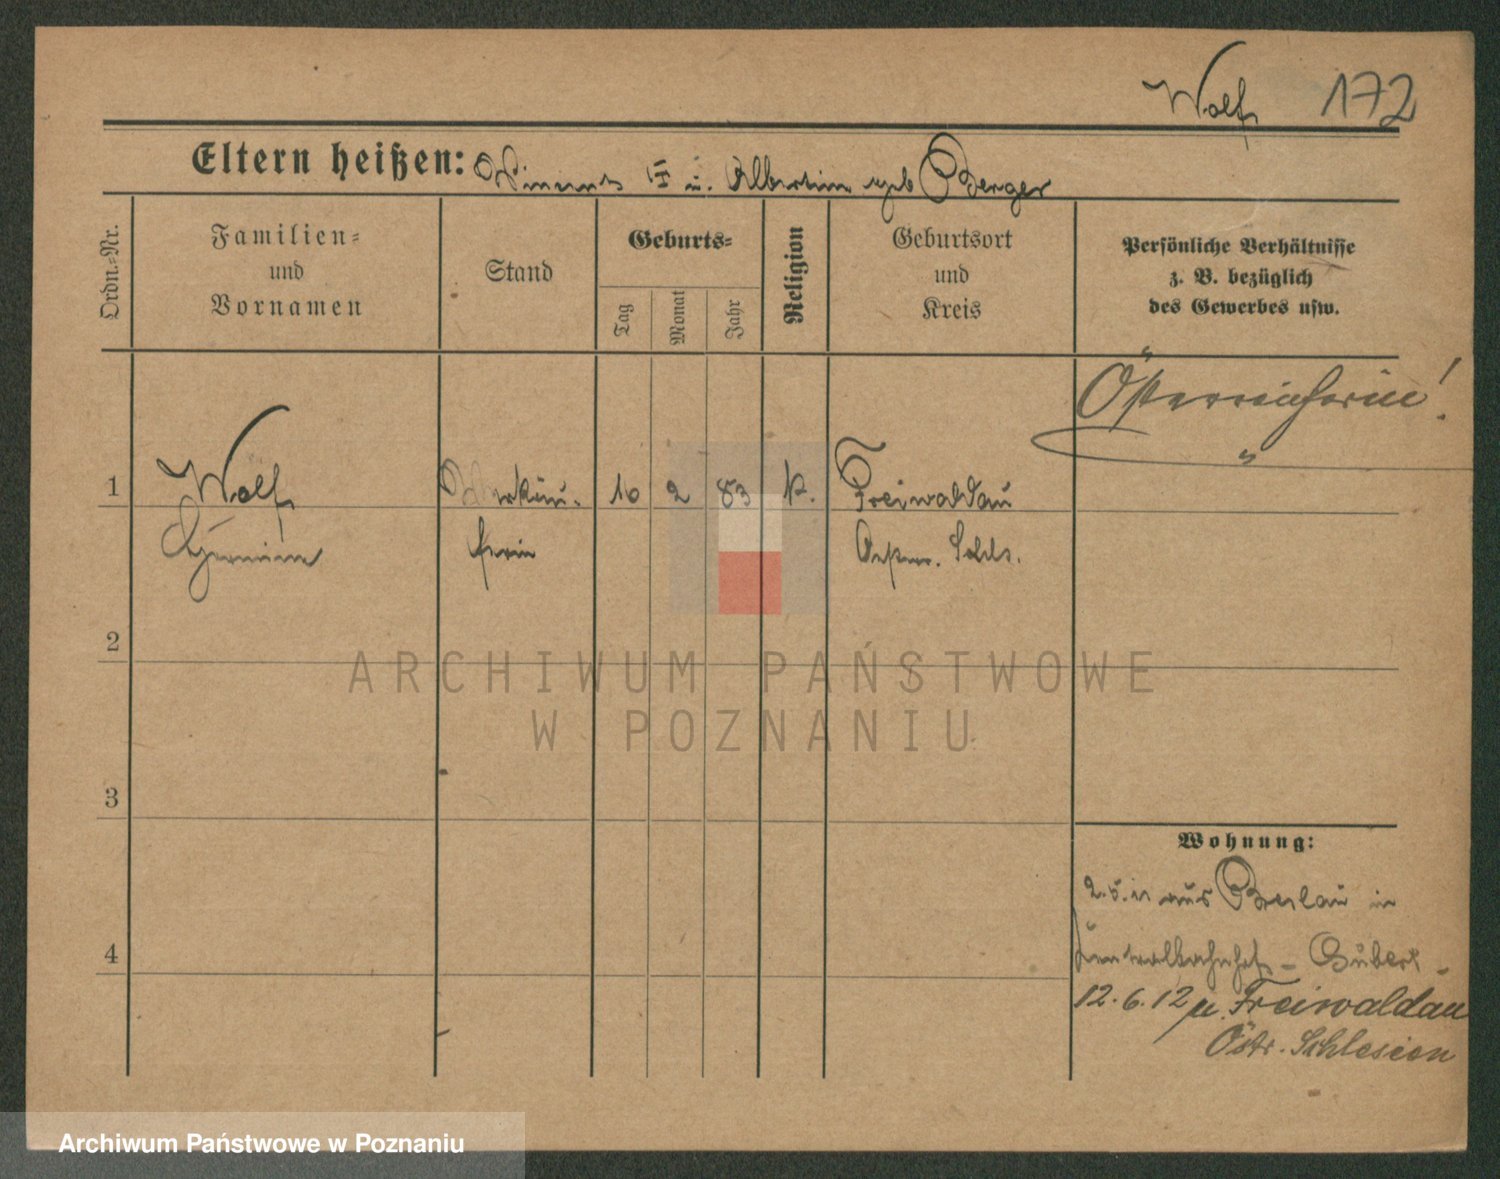 Wolf 172
Eltern heißen: u. Albertine geb Berger
Ordn.-Nr.
Familien-
und
Vornamen
Stand
Geburts-
Tag
Monat
Jahr
Religion
Geburtsort
und
Kreis
Persönliche Verhältnisse
z. B. bezüglich
des Gewerbes usw.
Österreicherin!
1 Wolf 10 2 83 k. Freiwaldau
Oestr. Schls.
2
ARCHIWUM PAŃSTWOWE
W POZNANIU
3
Wohnung:
aus Breslau in
4
12.6.12 n. Freiwaldau
Östr. Schlesien
Archiwum Państwowe w Poznaniu